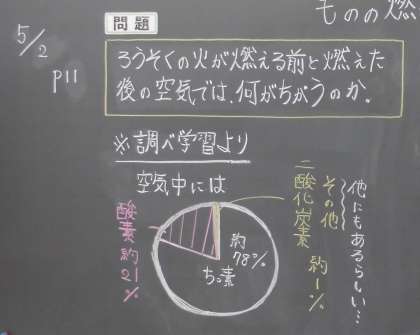 ものの燃
5/2
p11
問題
ろうそくの火が燃える前と燃えた
後の空気では、何がちがうのか。
※調べ学習より
空気中には
酸素 約21%
約78%
ちっ素
二酸化炭素
その他
約1%
他にもあるらしい…